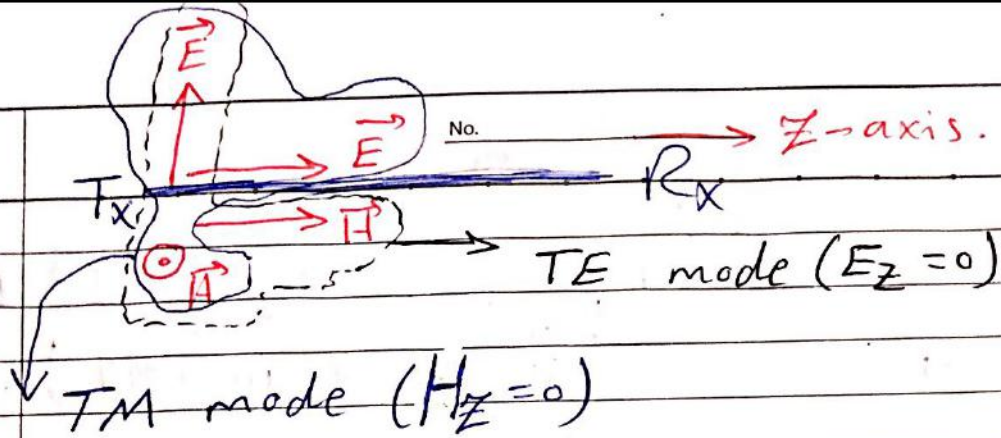 E
E
No.
Z-axis.
Tx
Rx
H
H
TE mode (Ez=0)
TM mode (Hz=0)